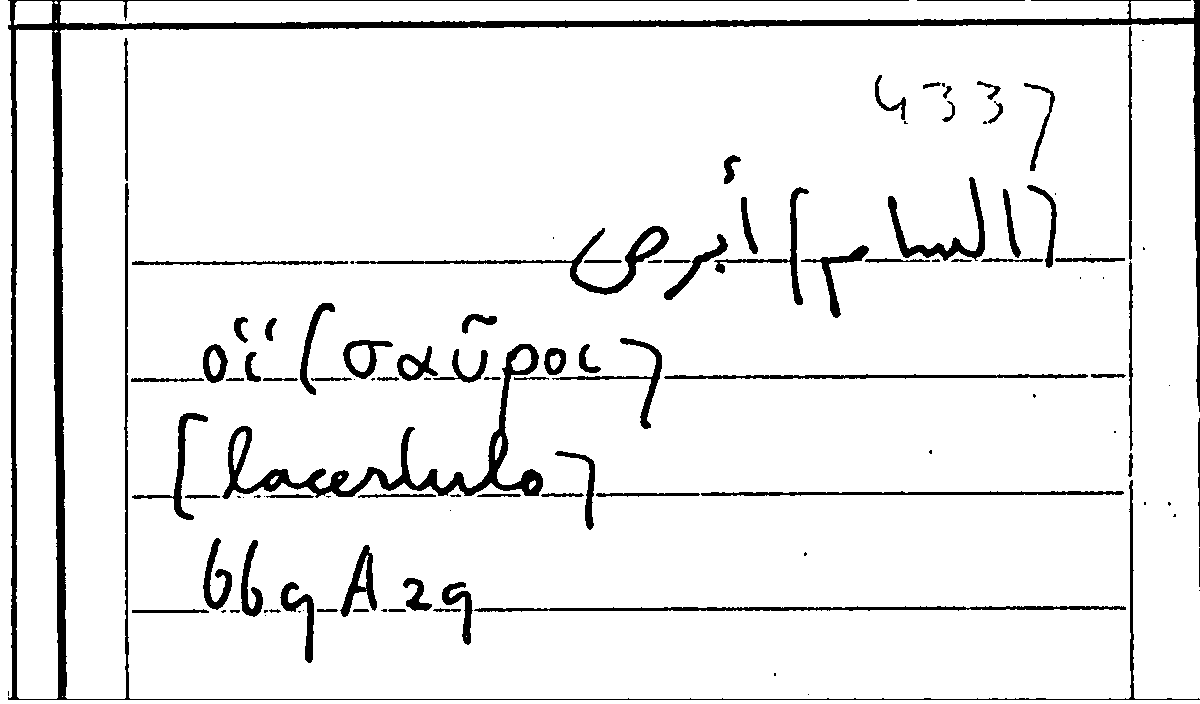 4337
[السام] أبرص
οἵ (σαῦροι)
[lacertulo]
669A29